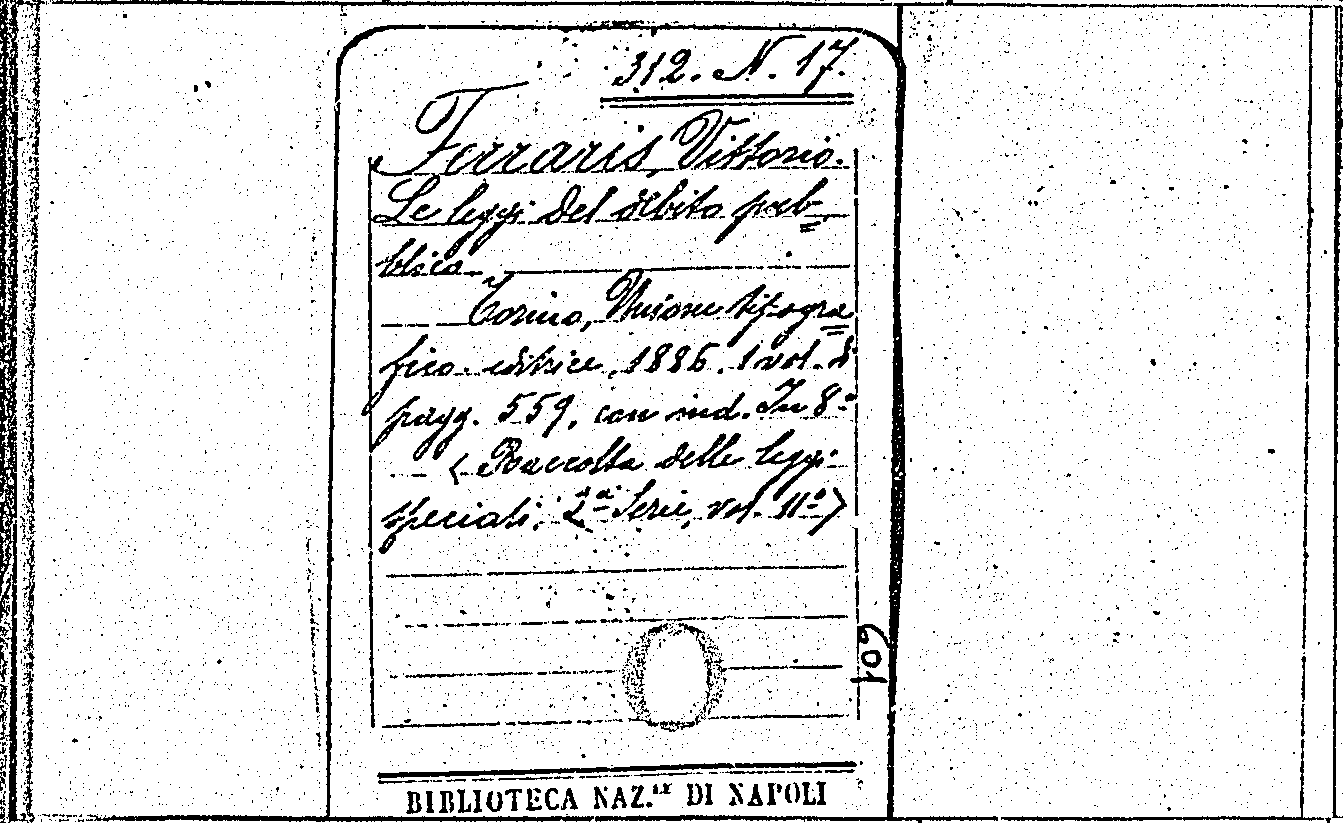 312. N. 17.
Ferraris, Vittorio.
Le leggi del debito pub=
blico.
Torino, Unione tipogra=
fico-editrice, 1886. 1 vol. di
pagg. 559, con ind. In 8.°
(Raccolta delle leggi
speciali; 2ª Serie, vol. 11°)
601
BIBLIOTECA NAZ.LE DI NAPOLI